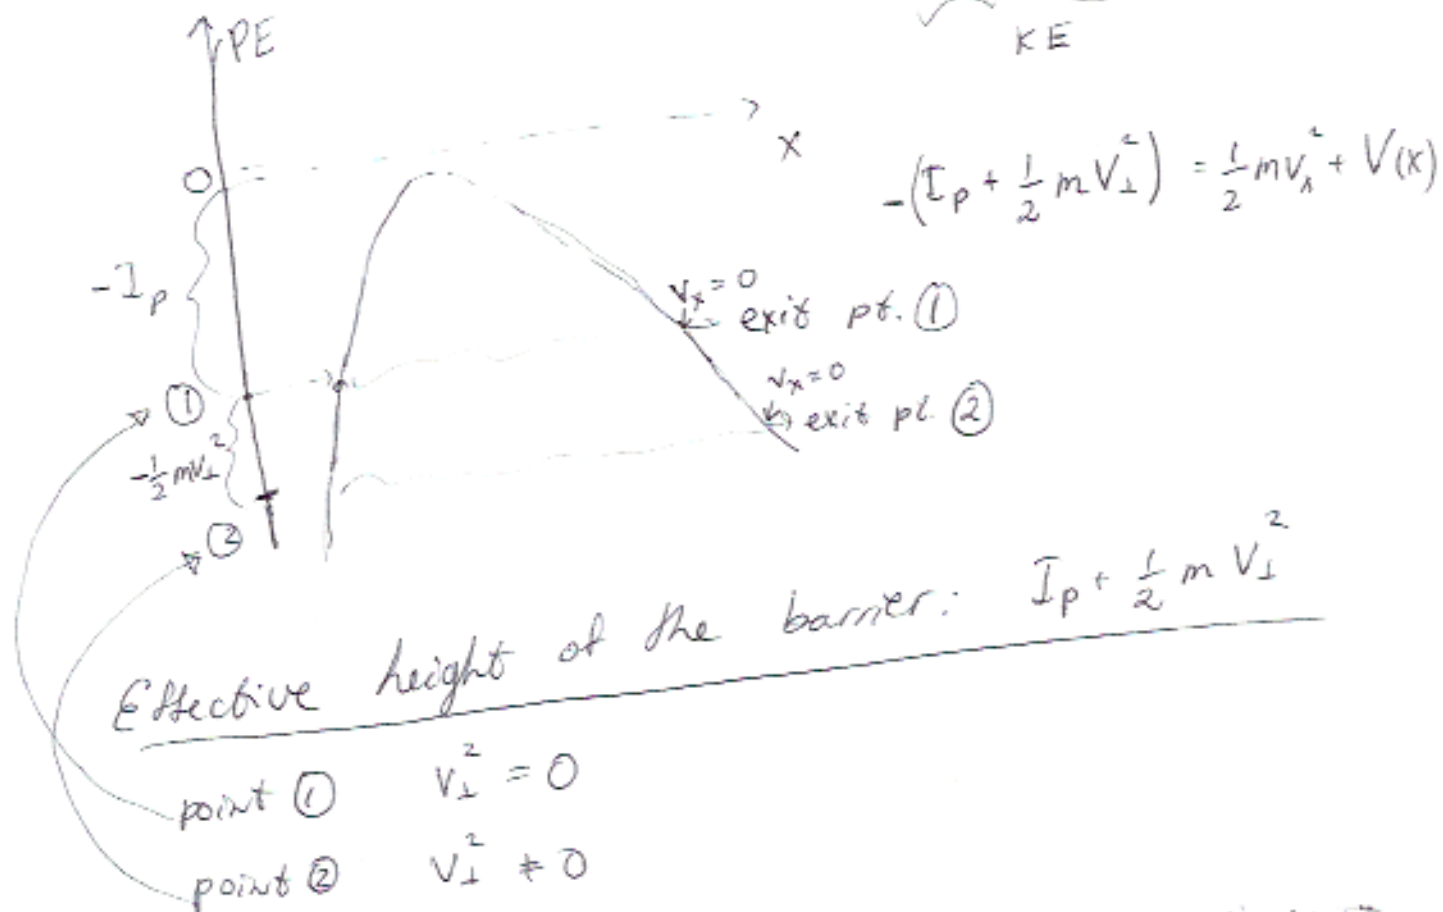 PE
KE
x
0
-(I_p + 1/2 m V_⊥^2) = 1/2 m v_x^2 + V(x)
-I_p
v_x = 0
exit pt. ①
①
v_x = 0
exit pt. ②
-1/2 m v_⊥^2
②
Effective height of the barrier: I_p + 1/2 m V_⊥^2
point ① V_⊥^2 = 0
point ② V_⊥^2 ≠ 0